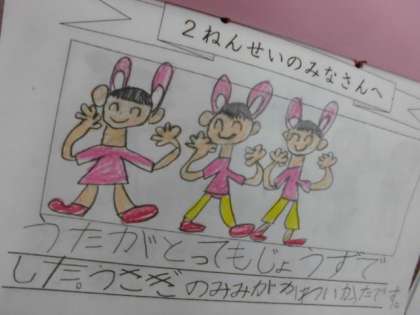 2ねんせいのみなさんへ
うたがとってもじょうずで
した。うさぎのみみがかわいかたです。